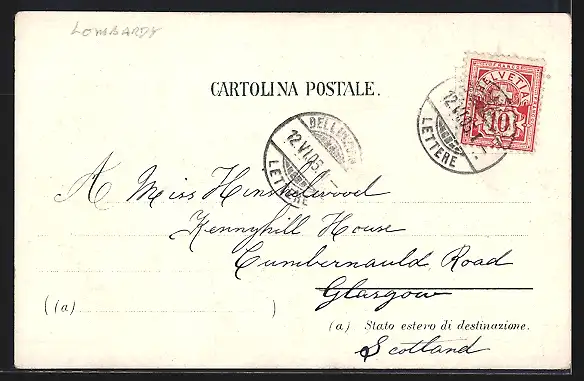 LOMBARDY
CARTOLINA POSTALE.
HELVETIA
FRANCO
10
12.VI.05
LETTERE
BELLINZONA
12.VI.05
LETTERE
A Miss Hinshelwood
Kennyhill House
Cumbernauld Road
Glasgow
((a) )
(a) Stato estero di destinazione.
Scotland